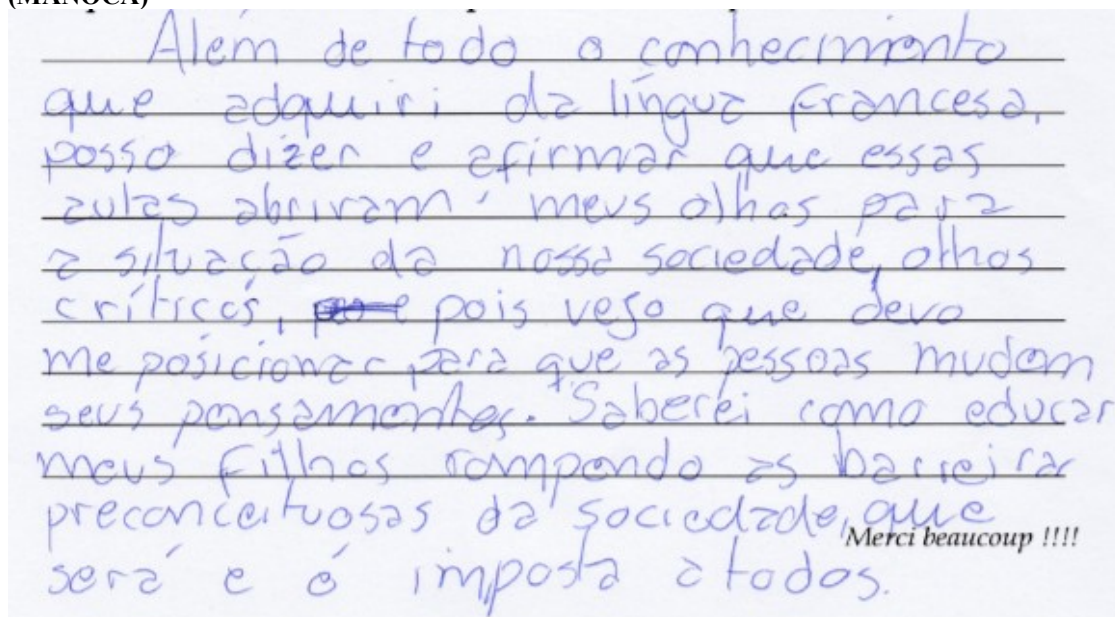 (MANOCA)
Além de todo o conhecimento
que adquiri da língua francesa,
posso dizer e afirmar que essas
aulas abriram meus olhos para
a situação da nossa sociedade, olhos
críticos, pois vejo que devo
me posicionar para que as pessoas mudem
seus pensamentos. Saberei como educar
meus filhos rompendo as barreiras
preconceituosas da sociedade, que
Merci beaucoup !!!!
será e é imposta a todos.